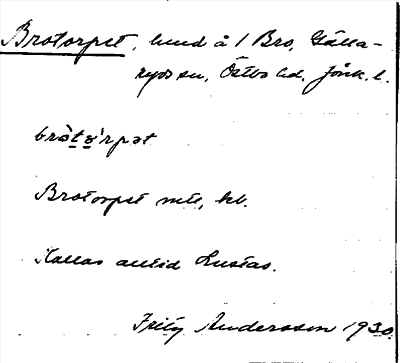 Brotorpet, lund å 1 Bro, Gälla-
ryds sn, Östbo hd, Jönk. l.
bròtò̤rpət
Brotorpet mtl, kb.
Kallas alltid Lustas.
Fritz Andersson 1930.